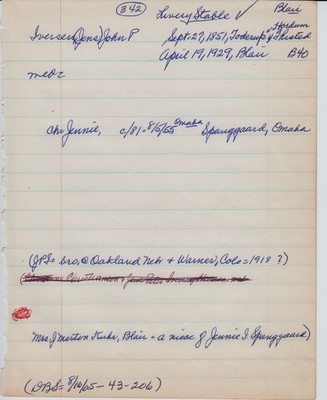 342 Livery Stable ✓ Blair
Iversen, (Jens) John P Sept. 27, 1851, Toderup, Thisted
April 19, 1929, Blair B40
med=
ch= Jennie, c/81= 8/5/65 Omaha Spanggaard, Omaha
(JPS= bro, @ Oakland Nebr & Warner, Colo= 1918 ?)
Mrs. J Morton Kuhr, Blair = a niece of Jennie I Spanggaard)
(DBS= 8/10/65-43-206)